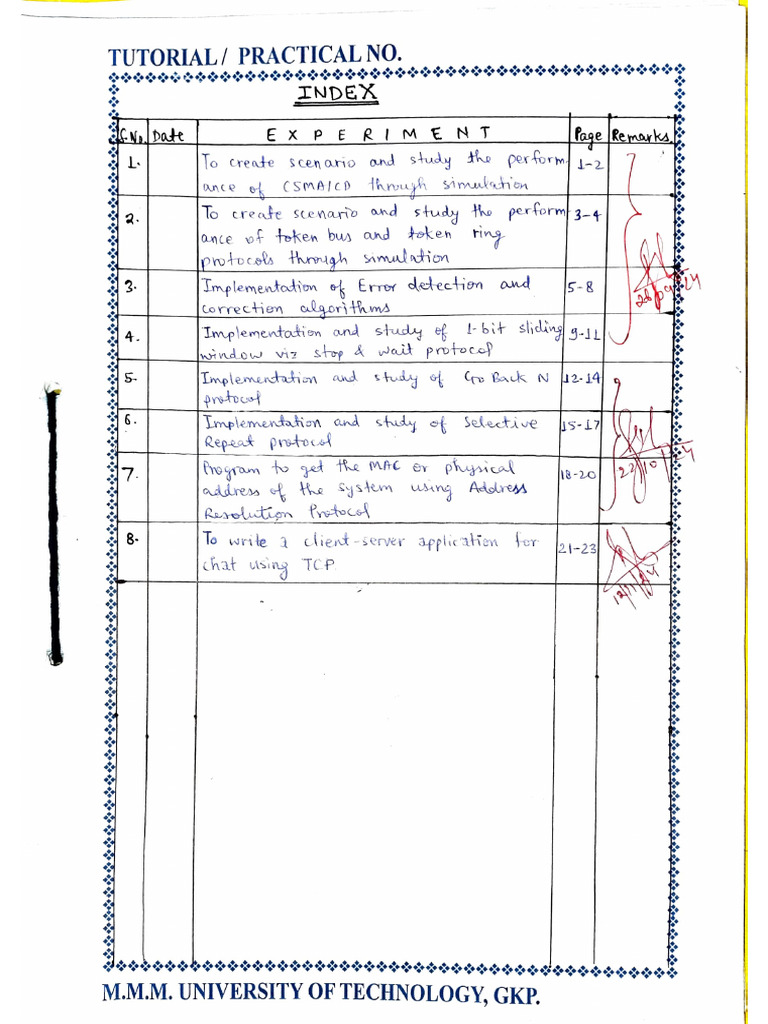 TUTORIAL / PRACTICAL NO.
INDEX
S.No. Date EXPERIMENT Page Remarks
1. To create scenario and study the perform 1-2
ance of CSMA/CD through simulation
2. To create scenario and study the perform 3-4
ance of token bus and token ring
protocols through simulation
26/09/24
3. Implementation of Error detection and 5-8
correction algorithms
4. Implementation and study of 1-bit sliding 9-11
window viz stop & wait protocol
5. Implementation and study of Go Back N 12-14
protocol
6. Implementation and study of Selective 15-17
Repeat protocol
22/10/24
7. Program to get the MAC or physical 18-20
address of the system using Address
Resolution Protocol
8. To write a client-server application for 21-23
chat using TCP
M.M.M. UNIVERSITY OF TECHNOLOGY, GKP.